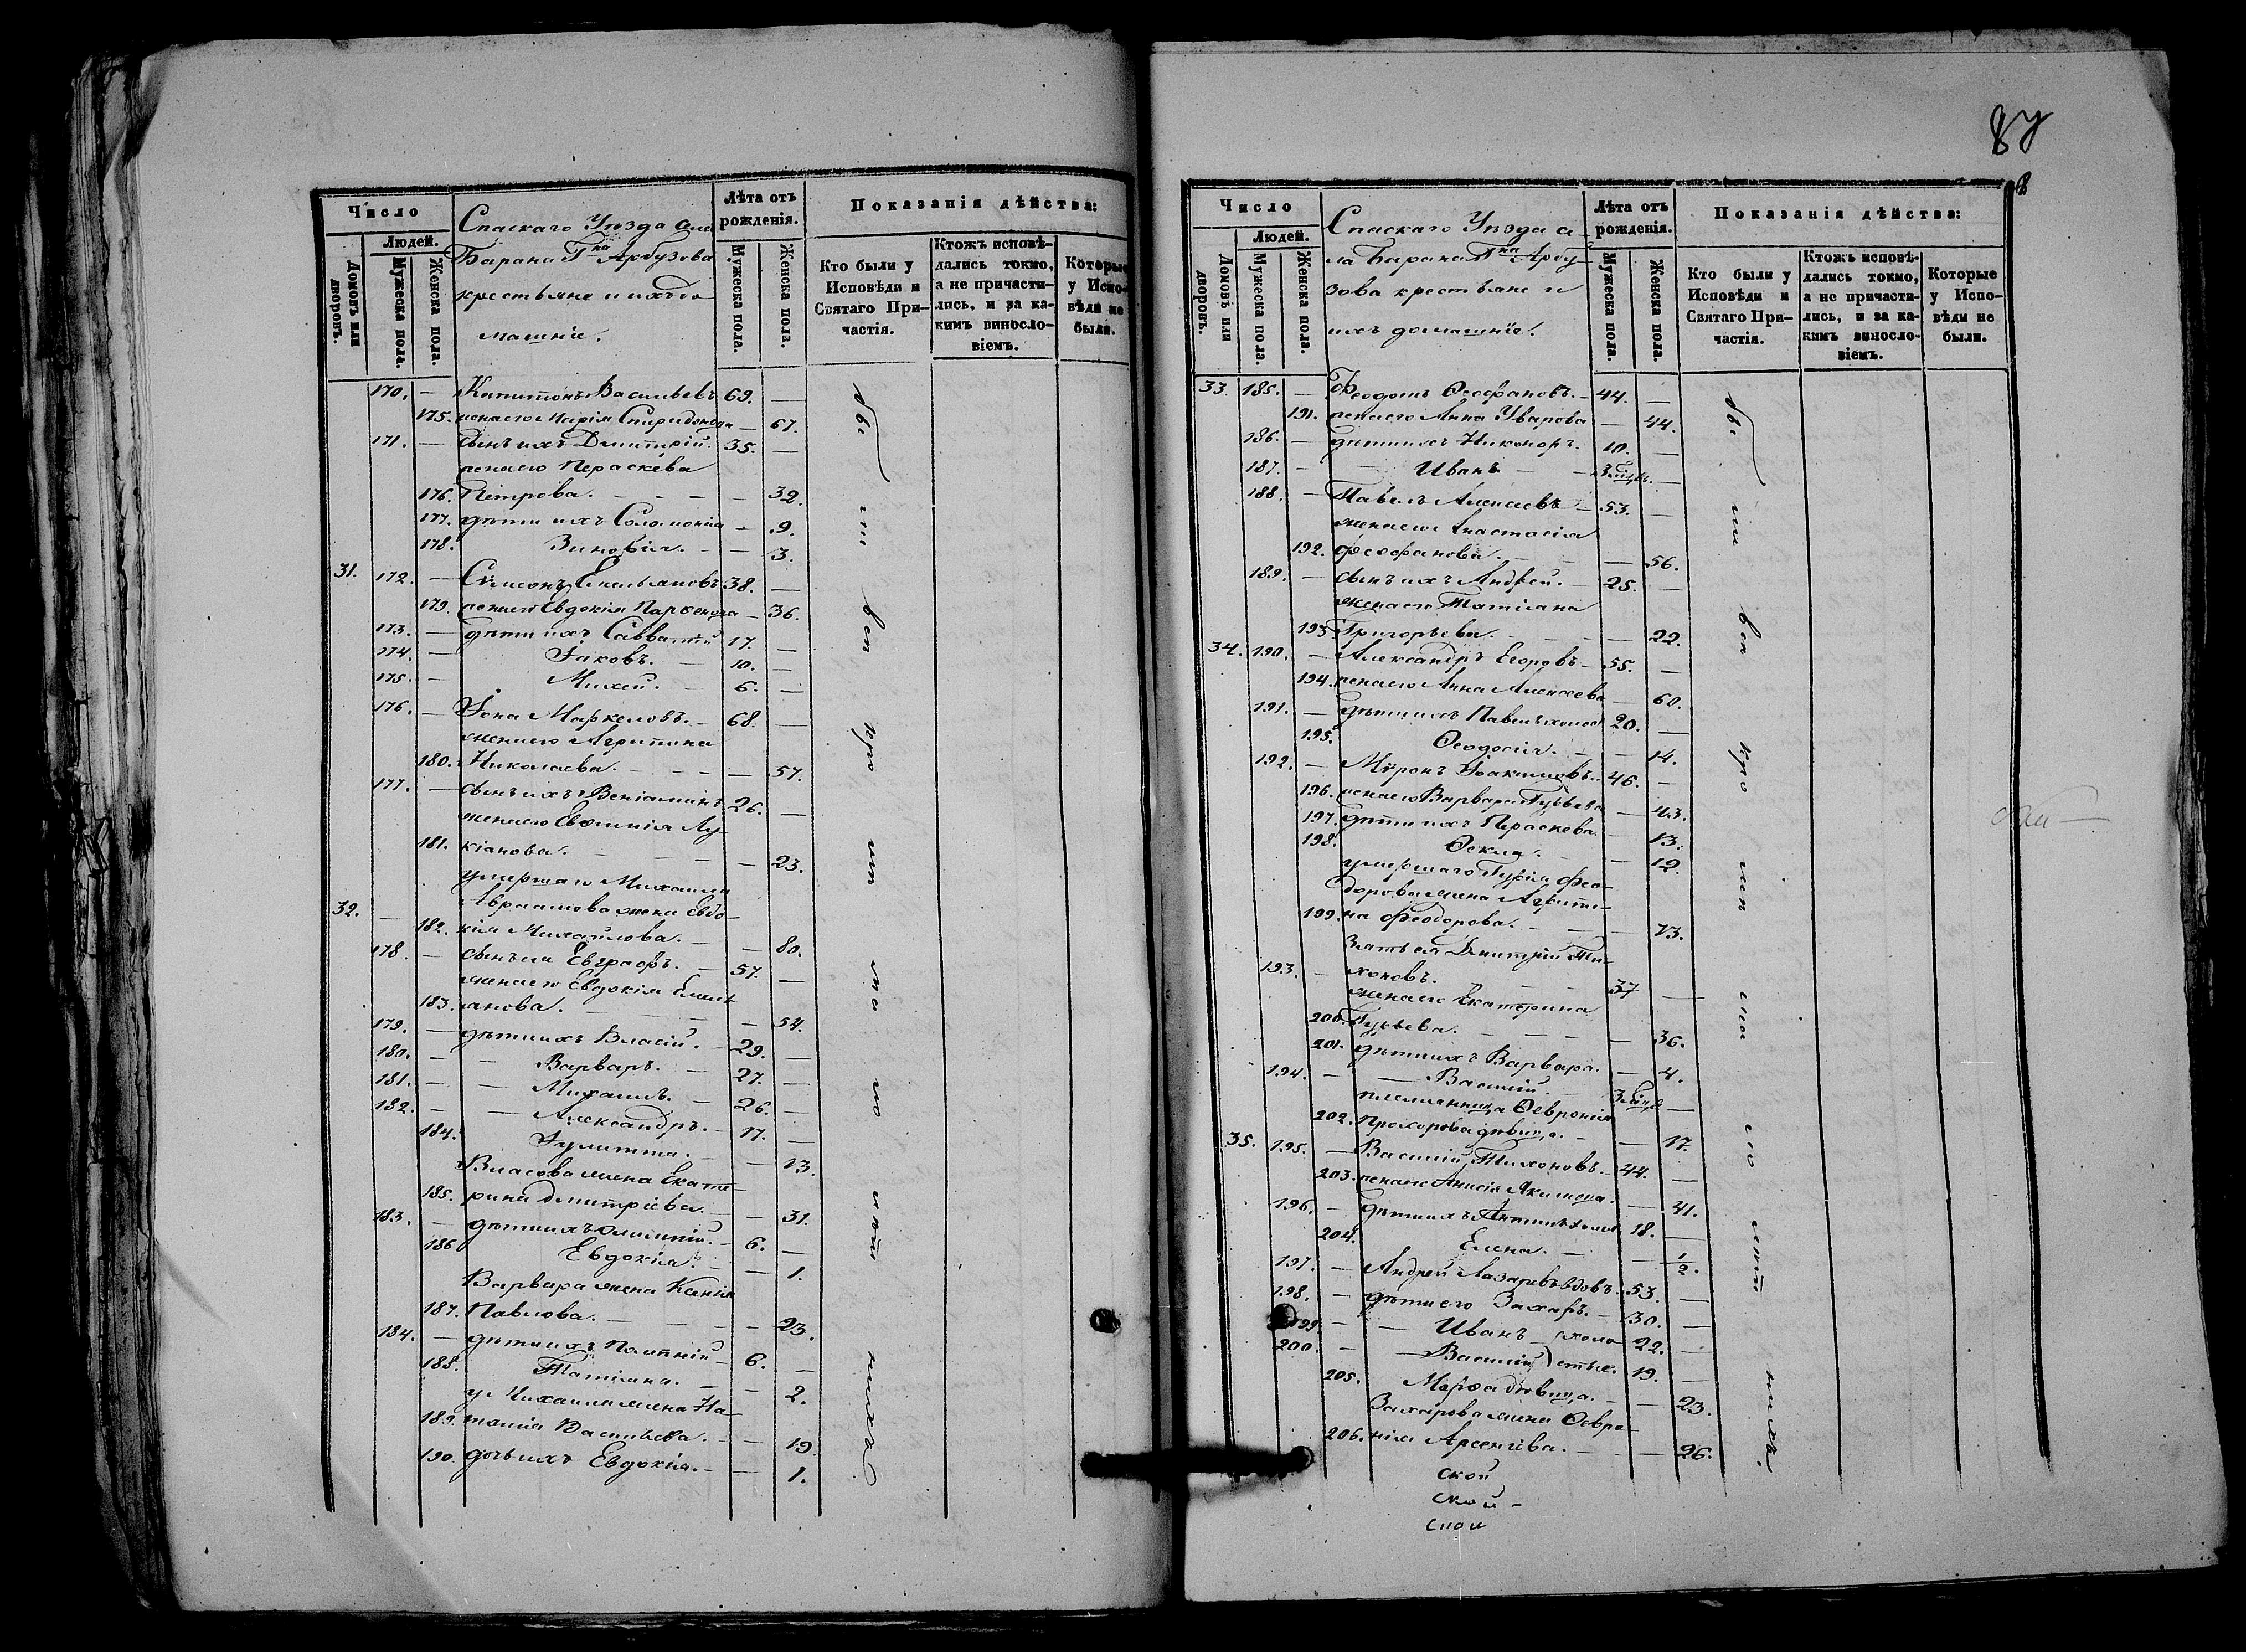 87
Число
Людей.
Домовъ или дворовъ.
Мужеска пола.
Женска пола.
Спаскаго Уѣзда села
Барана Гна Арбузова
крестьяне и ихъ до
машніе.
Лѣта отъ рожденія.
Мужеска пола.
Женска пола.
Показанія дѣйства:
Кто были у Исповѣди и Святаго При-частія.
Ктожъ исповѣ-дались токмо, а не причасти-лись, и за ка-кимъ винослo-віемъ.
Которые у Испо-вѣди не были.
170. — Капитонъ Васильевъ 69. —
175. жена его Марія Спиридонова — 67.
171. — сынъ ихъ Дмитрій. 35. —
жена его Пераскева
176. Петрова. — — — — 32.
177. дѣти ихъ Соломонія — 9.
178. Зиновія. — — 3.
31. 172. — Симеонъ Емельяновъ 38. —
179. жена его Евдокія Парѳенова — 36.
173. — дѣти ихъ Савватій 17. —
174. — Іаковъ. — 10. —
175. — Михей. — 6. —
176. — Іона Маркеловъ. — 68. —
жена его Агрипина
180. Николаева. — — — — 57.
177. — сынъ ихъ Веніаминъ 26. —
жена его Евѳимія Лу-
181. кіанова. — — — — 23.
умершаго Михаила
32. — Авраамова жена Евдо-
182. кія Михайлова. — — 80.
178. — сынъ ея Евграфъ. — 57. —
жена его Евдокія Емель
183. янова. — — — — 54.
179. — дѣти ихъ Власій. — 29. —
180. — — Варваръ. — 27. —
181. — — Михаилъ. — 26. —
182. — — Александръ. — 17. —
184. Іулитта. — — 13.
Власова жена Екате-
185. рина Дмитріева. — — 31.
183. — дѣти ихъ — 6. —
186 Евдокія. — — 1.
Варвара жена Ксенія
187. Павлова. — — — — 23.
184. — дѣти ихъ — 6. —
188. Татіана. — — 2.
у Михаила жена На-
189. талія Васильева. — — 19.
190. дочь ихъ Евдокія. — — 1.
Число
Людей.
Домовъ или дворовъ.
Мужеска пола.
Женска пола.
Спаскаго Уѣзда се-
ла Барана Гна Арбу-
зова крестьяне и
ихъ домашніе.
Лѣта отъ рожденія.
Мужеска пола.
Женска пола.
Показанія дѣйства:
Кто были у Исповѣди и Святаго При-частія.
Ктожъ исповѣ-дались токмо, а не причасти-лись, и за ка-кимъ винослo-віемъ.
Которые у Испо-вѣди не были.
33. 185. — Ѳеодотъ Ѳеофановъ. — 44. —
191. жена его Анна Уварова — 44.
186. — дѣти ихъ Никоноръ. 10. —
187. — — Иванъ —
188. — Павелъ Алексѣевъ — 53. —
жена его Анастасія
192. Феофанова. — — — 56.
189. — сынъ ихъ Андрей. — 25. —
жена его Татіана
193. Григорьева. — — — 22.
34. 190. — Александръ Егоровъ — 55. —
194. жена его Анна Алексѣева — 60.
191. — дѣти ихъ Павелъ холост 20. —
195. Ѳеодосія. — — 14.
192. — Миронъ Іоакимовъ — 46. —
196. жена его Варвара Гурьева — 43.
197. дѣти ихъ Пераскева. — 13.
198. Ѳекла. — — 12.
умершаго Гурія Фео-
дорова жена Агрипи-
199. на Феодорова. — — — 73.
зять ея Дмитрій Ти-
193. — хоновъ. — — 37 —
жена его Екатерина
200. Гурьева. — — — — 36.
201. дѣти ихъ Варвара. — 4.
194. — — Василій —
племянница Ѳевронія
202. Прохорова дѣвица. — — 17.
35. 195. — Василій Тихоновъ. — 44. —
203. жена его Анисія Якимова. — 41.
196. — дѣти ихъ холос 18. —
204. Елена. — — 1/2.
197. — Андрей Лазаревъ вдовъ. 53. —
198. — дѣти его Захаръ. — 30. —
199. — — Иванъ холо 22. —
200. — — Василій стые. 19. —
205. Марѳа дѣвица. — — 23.
Захарова жена Ѳевро-
206. нія Арсеньева. — — 26.
ской
ской —
ской